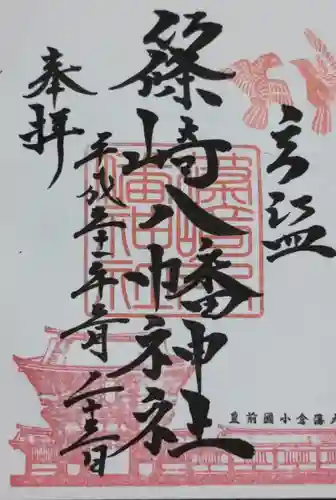 篠崎八幡神社
奉拝
平成三十一年三月二十三日
篠崎八
幡神社
豊前國小倉藩